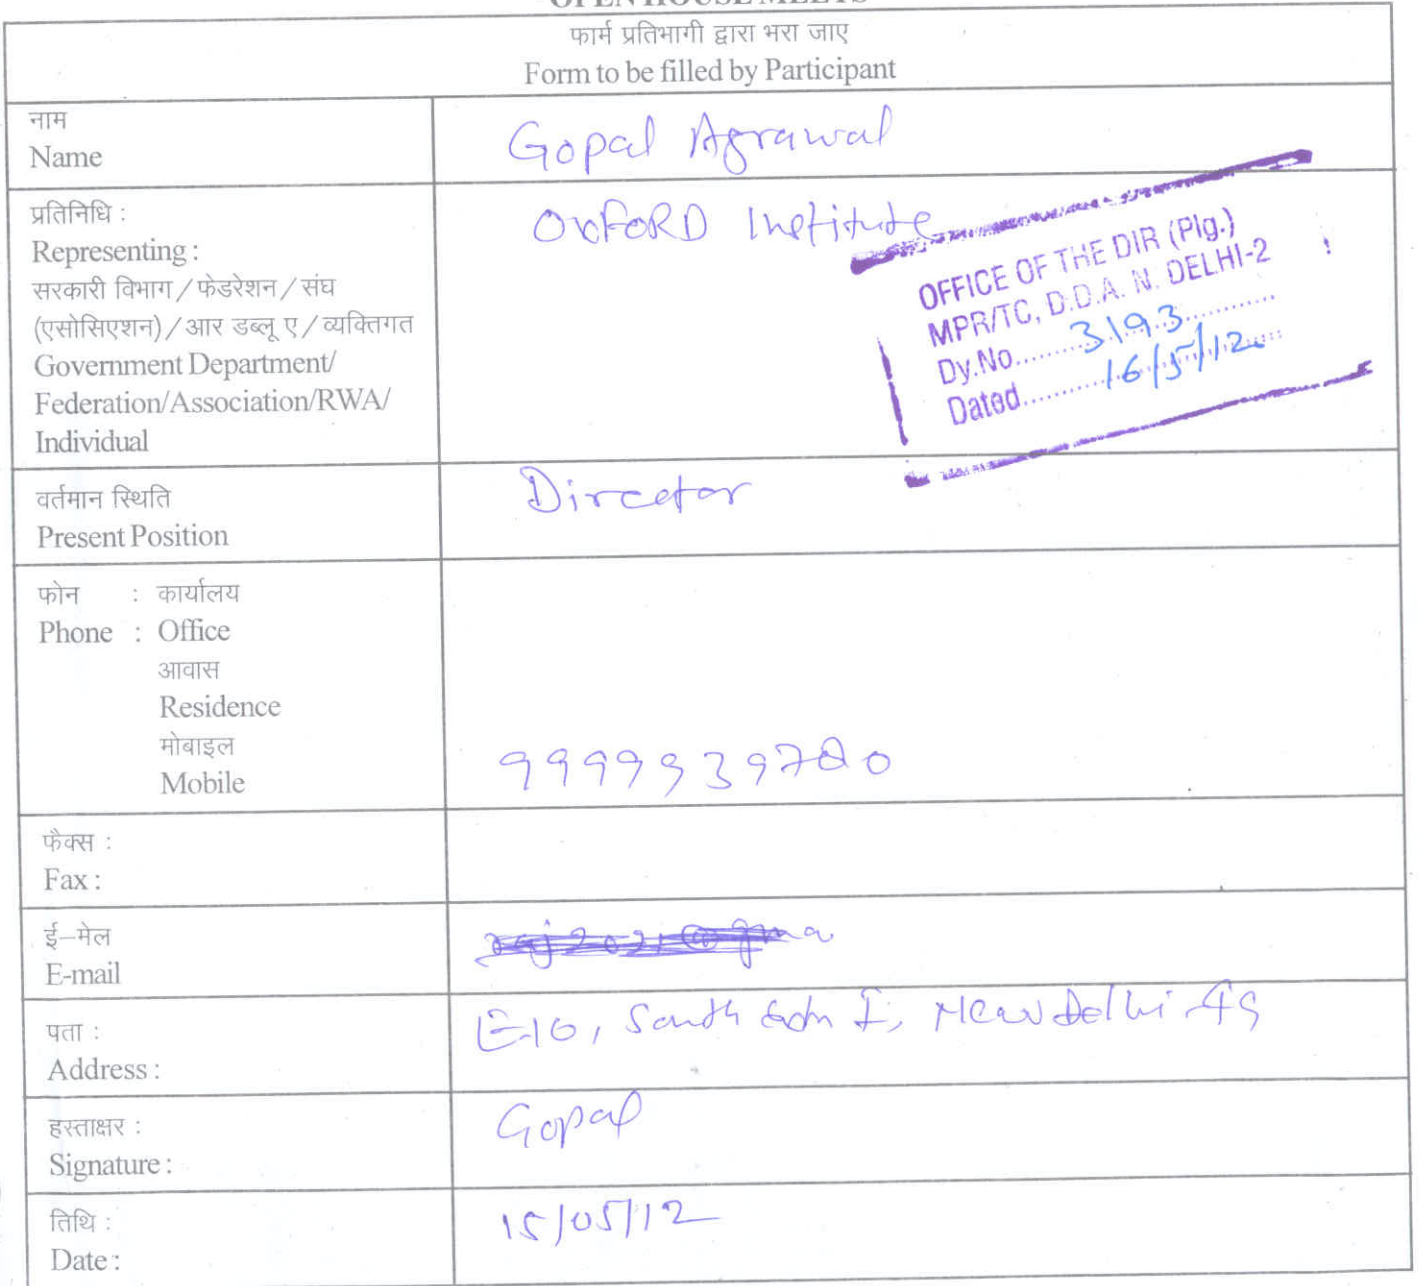 OPEN HOUSE MEETS
फार्म प्रतिभागी द्वारा भरा जाए
Form to be filled by Participant
नाम
Name
Gopal Agrawal
प्रतिनिधि :
Representing :
सरकारी विभाग / फेडरेशन / संघ
(एसोसिएशन) / आर डब्लू ए / व्यक्तिगत
Government Department/
Federation/Association/RWA/
Individual
OxFORD Institute
OFFICE OF THE DIR (Plg.)
MPR/TC, D.D.A. N. DELHI-2
Dy.No.........3193.............
Dated.........16/5/12.........
वर्तमान स्थिति
Present Position
Director
फोन : कार्यालय
Phone : Office
आवास
Residence
मोबाइल
Mobile
9999939780
फैक्स :
Fax :
ई–मेल
E-mail
पता :
Address :
E-10, South Extn I, New Delhi-49
हस्ताक्षर :
Signature :
Gopal
तिथि :
Date :
15/05/12